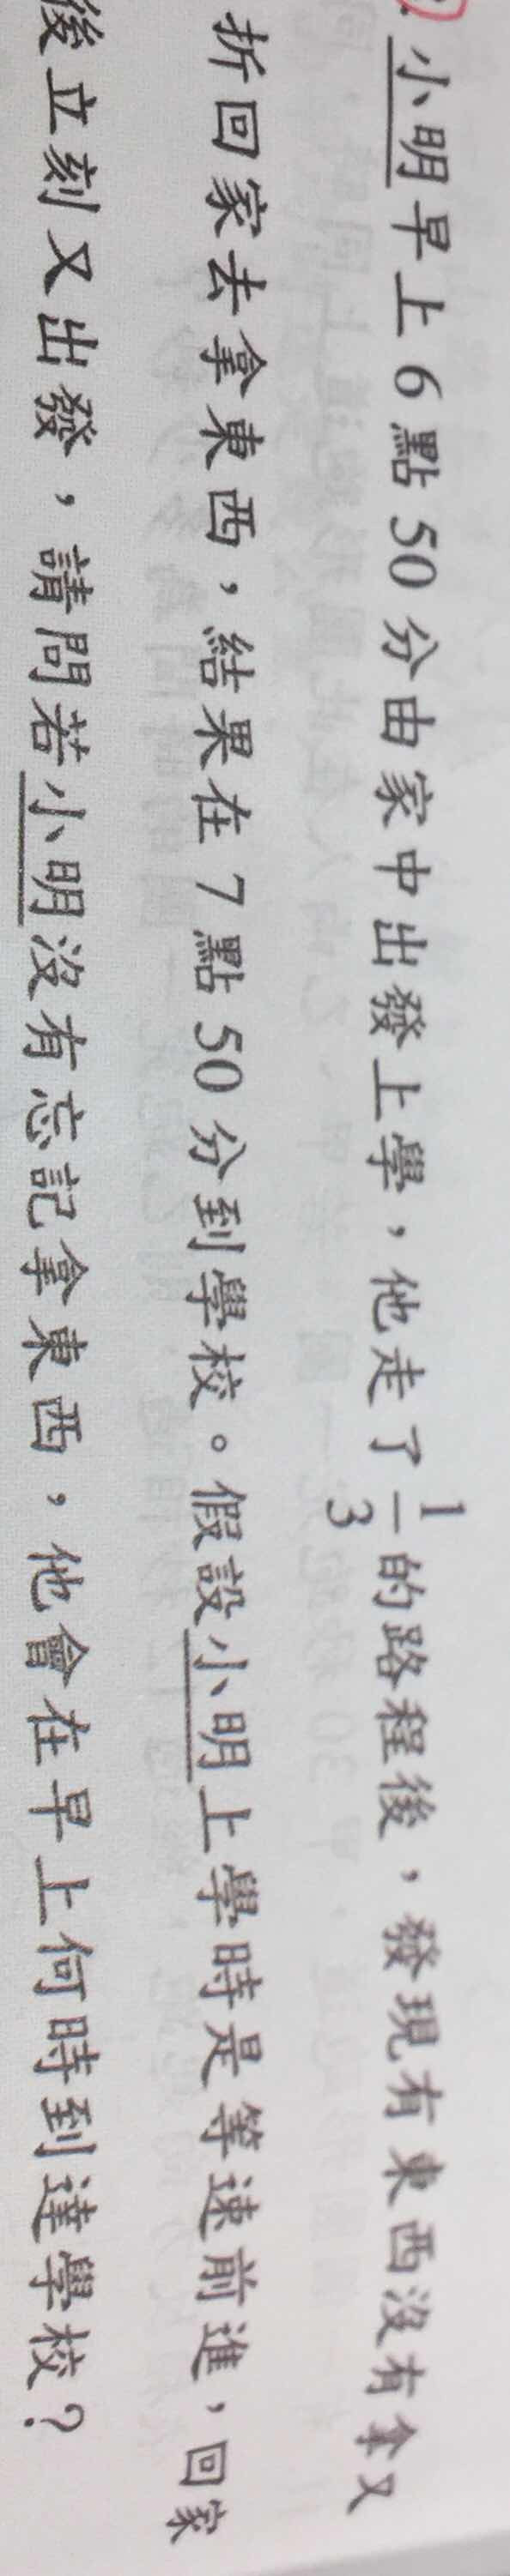 小明早上6點50分由家中出發上學，他走了1/3的路程後，發現有東西沒有拿又
折回家去拿東西，結果在7點50分到學校。假設小明上學時是等速前進，回家
後立刻又出發，請問若小明沒有忘記拿東西，他會在早上何時到達學校？